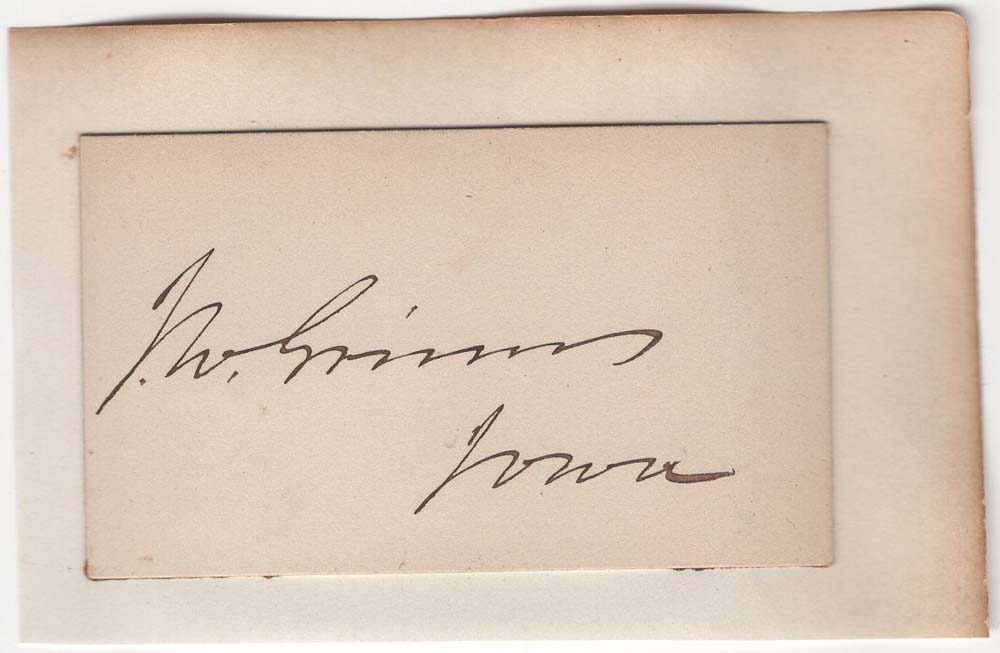 J. W. Grimes
Iowa